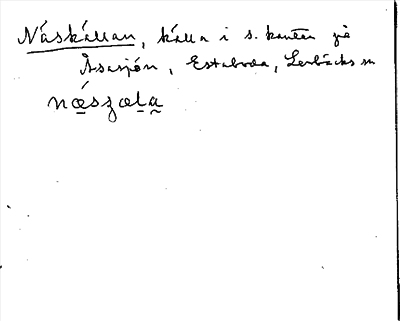 Näskällan, källa i s. kanten på
Åsasjön, Estaboda, Lerbäcks sn
næszæla